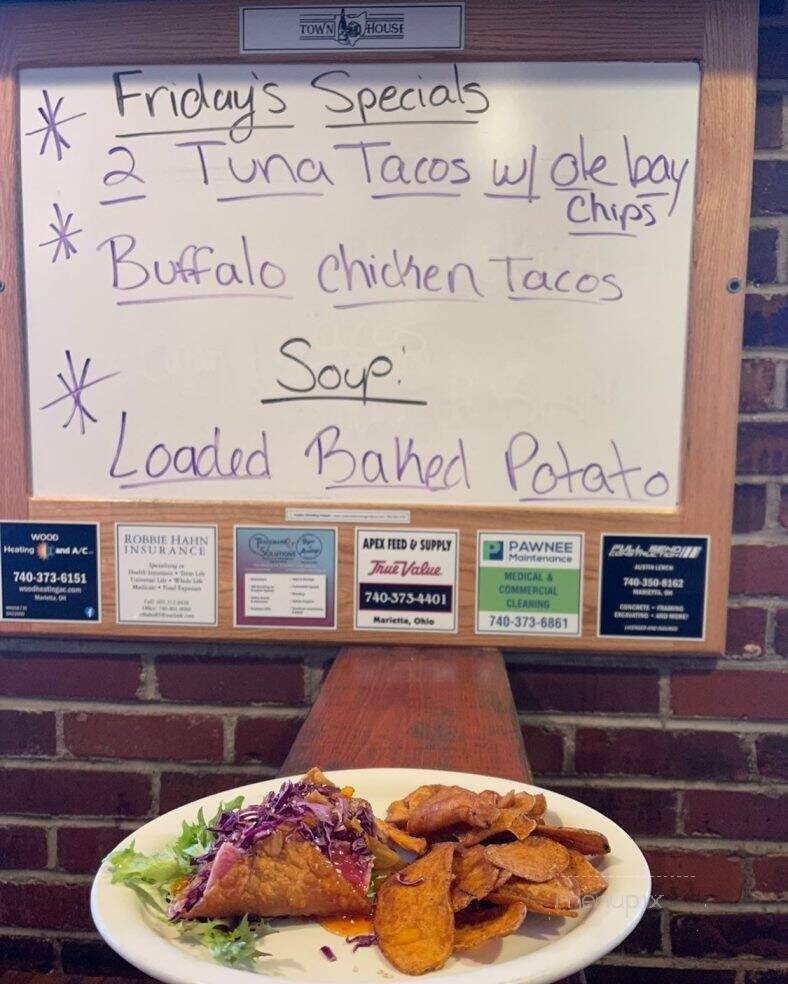 TOWN HOUSE
Friday's Specials
2 Tuna Tacos w/ ole bay
Chips
Buffalo Chicken Tacos
Soup:
Loaded Baked Potato
WOOD
Heating and A/C
740-373-6151
woodheatingac.com
Marietta, OH
ROBBIE HAHN
INSURANCE
Specializing in
Health Insurance • Term Life
Universal Life • Whole Life
Medicare • Final Expenses
SOLUTIONS
APEX FEED & SUPPLY
True Value
740-373-4401
Marietta, Ohio
PAWNEE
Maintenance
MEDICAL &
COMMERCIAL
CLEANING
740-373-6861
AUSTIN LERCH
740-350-8162
MARIETTA, OH
CONCRETE • FRAMING
EXCAVATING • AND MORE!
LICENSED AND INSURED
menupix